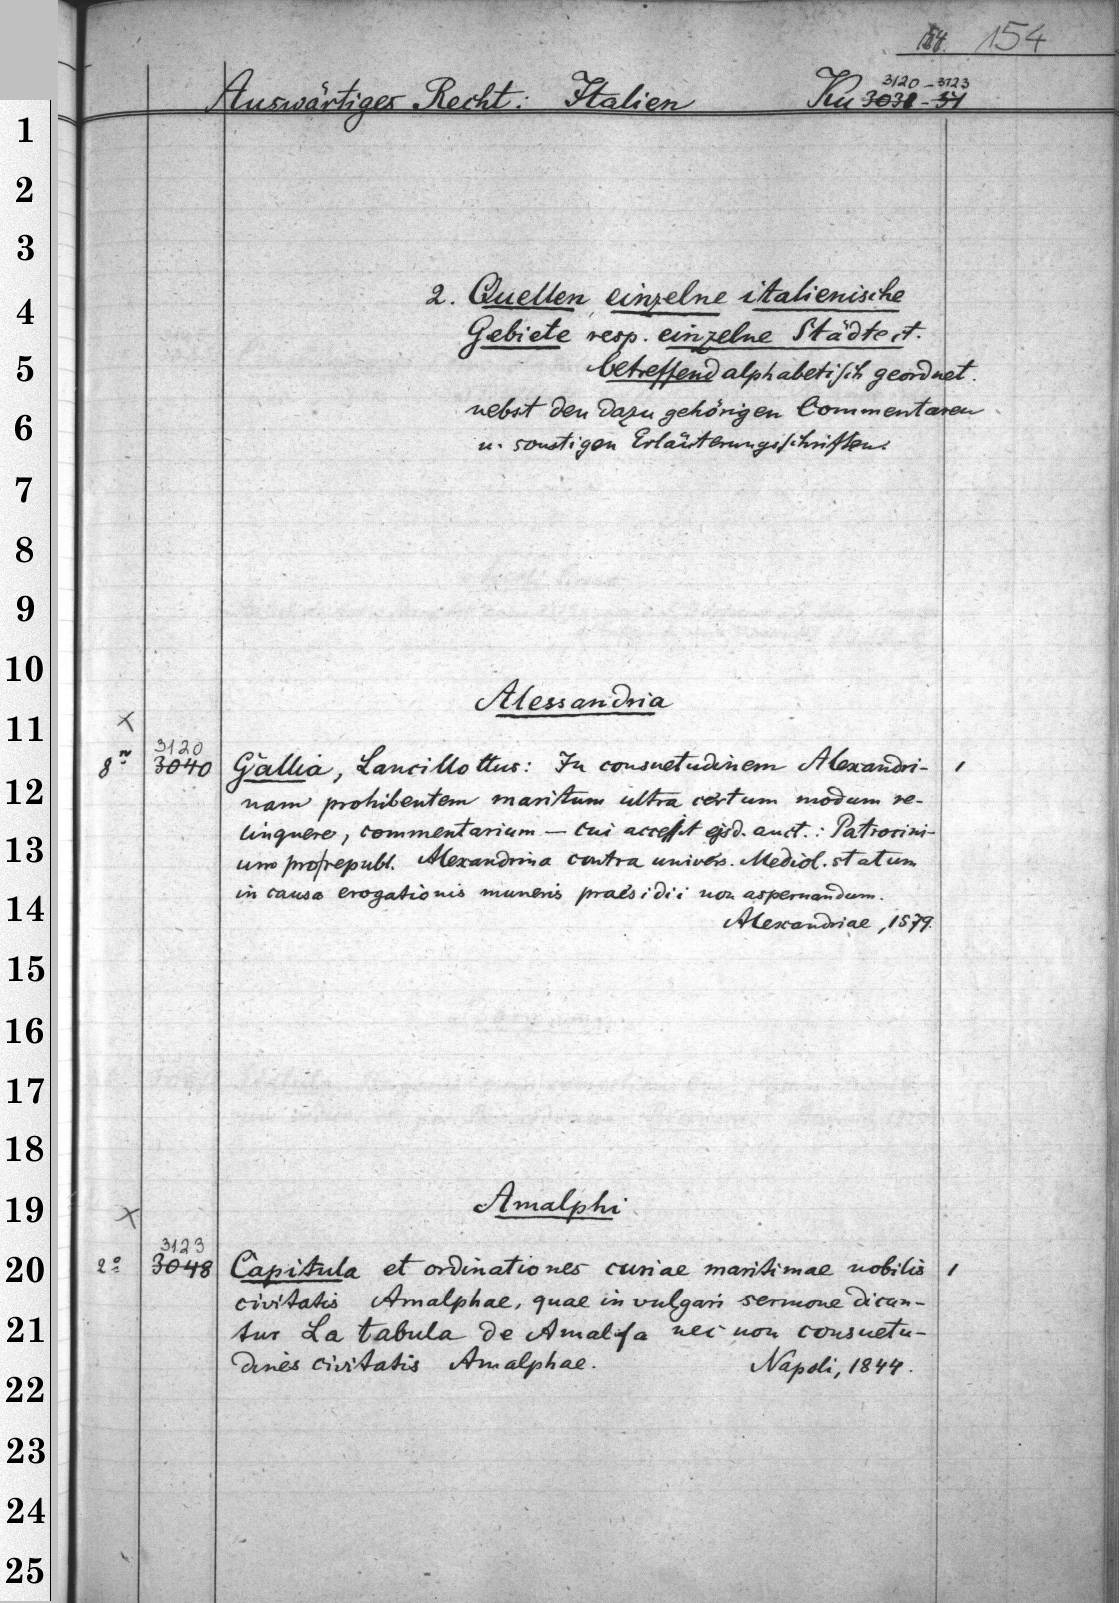 154. 154
3120 - 3123
Auswärtiges Recht: Italien Ku 3031 - 51
2. Quellen, einzelne italienische
Gebiete resp. einzelne Städte ct.
betreffend alphabetisch geordnet.
nebst den dazu gehörigen Commentaren
u. sonstigen Erläuterungsschriften.
Alessandria
×
3120
8º 3040 Gallia, Lancillottus: In consuetudinem Alexandri- 1
nam prohibentem maritum ultra certum modum re-
linquere, commentarium — cui accessit ejsd. auct.: Patrocini-
um pro republ. Alexandrina contra univers. Mediol. statum
in causa erogationis muneris praesidii non aspernandum.
Alexandriae, 1579.
Amalphi
×
3123
2º 3048 Capitula et ordinationes curiae maritimae nobilis 1
civitatis Amalphae, quae in vulgari sermone dicun-
tur La tabula de Amalfa nec non consuetu-
dines civitatis Amalphae. Napoli, 1844.
1
2
3
4
5
6
7
8
9
10
11
12
13
14
15
16
17
18
19
20
21
22
23
24
25